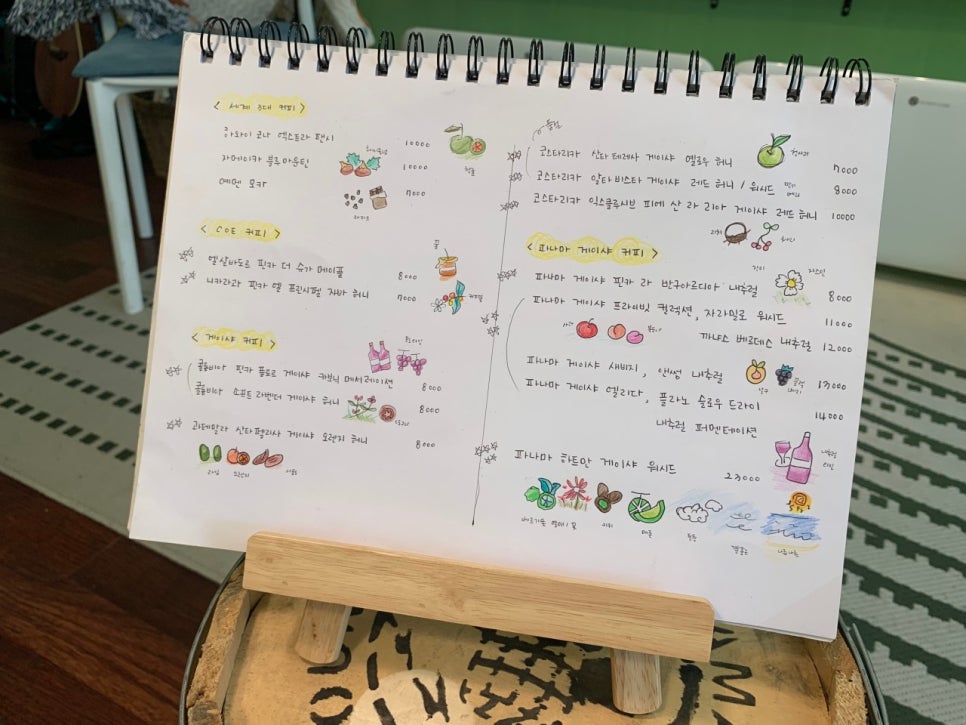 < 세계 3대 커피 >
하와이 코나 엑스트라 팬시 10000
자메이카 블루마운틴 10000
예멘 모카 7000
< COE 커피 >
꿀
엘살바도르 핀카 더 슈가 메이플 8000
니카라과 핀카 엘 프린시펄 자바 허니 7000
< 게이샤 커피 >
콜롬비아 핀카 플로르 게이샤 카보닉 메서레이션 8000
콜롬비아 소프트 라벤더 게이샤 허니 8000
과테말라 산타펠리사 게이샤 오렌지 허니 8000
코스타리카 산타 테레사 게이샤 옐로우 허니 7000
코스타리카 알타비스타 게이샤 레드 허니 / 워시드 8000
코스타리카 익스클루시브 피에 산 라 리아 게이샤 레드 허니 10000
체리
< 파나마 게이샤 커피 >
자스민
파나마 게이샤 핀카 라 반구아르디아 내추럴 8000
파나마 게이샤 프라이빗 컬렉션, 자라밀로 워시드 11000
까냐스 베르데스 내추럴 12000
파나마 게이샤 새비지, 앤썸 내추럴 13000
살구
파나마 게이샤 엘리다, 플라노 슬로우 드라이 14000
내추럴 퍼멘테이션
내추럴
와인
파나마 하트만 게이샤 워시드 23000